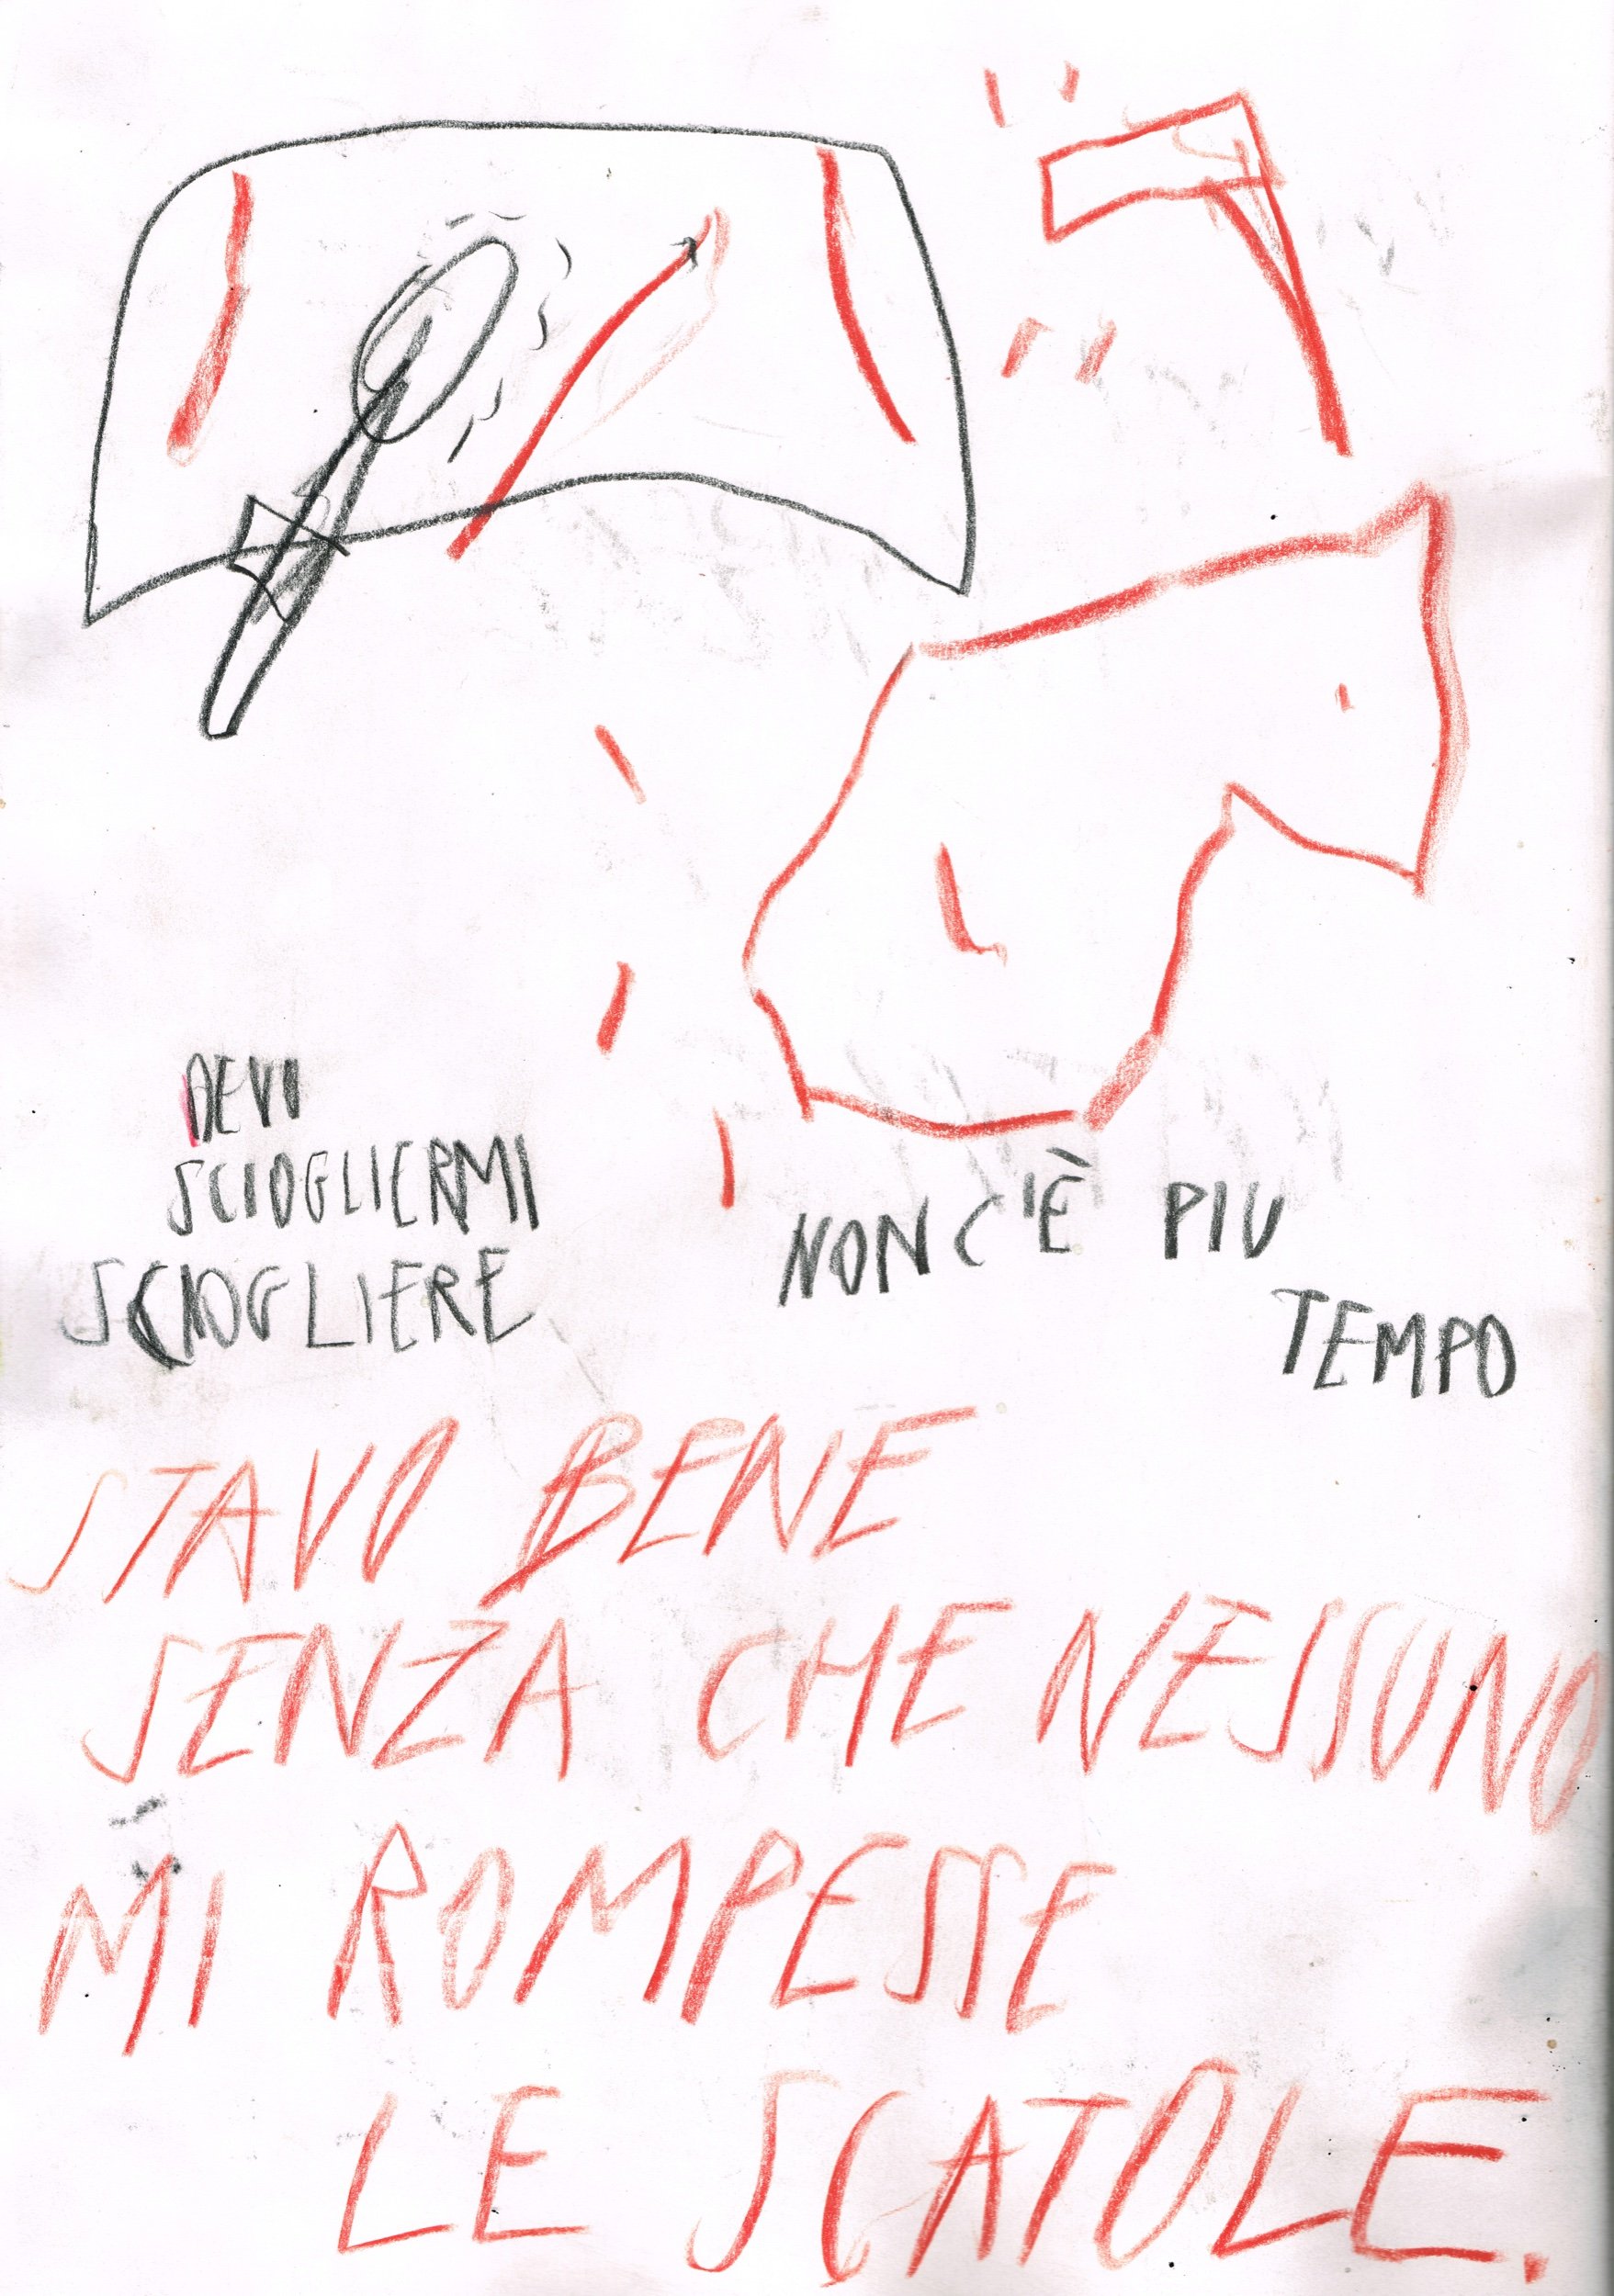 DEVI
SCIOGLIERMI
SCIOGLIERE
NON C'È PIU
TEMPO
STAVO BENE
SENZA CHE NESSUNO
MI ROMPESSE
LE SCATOLE.